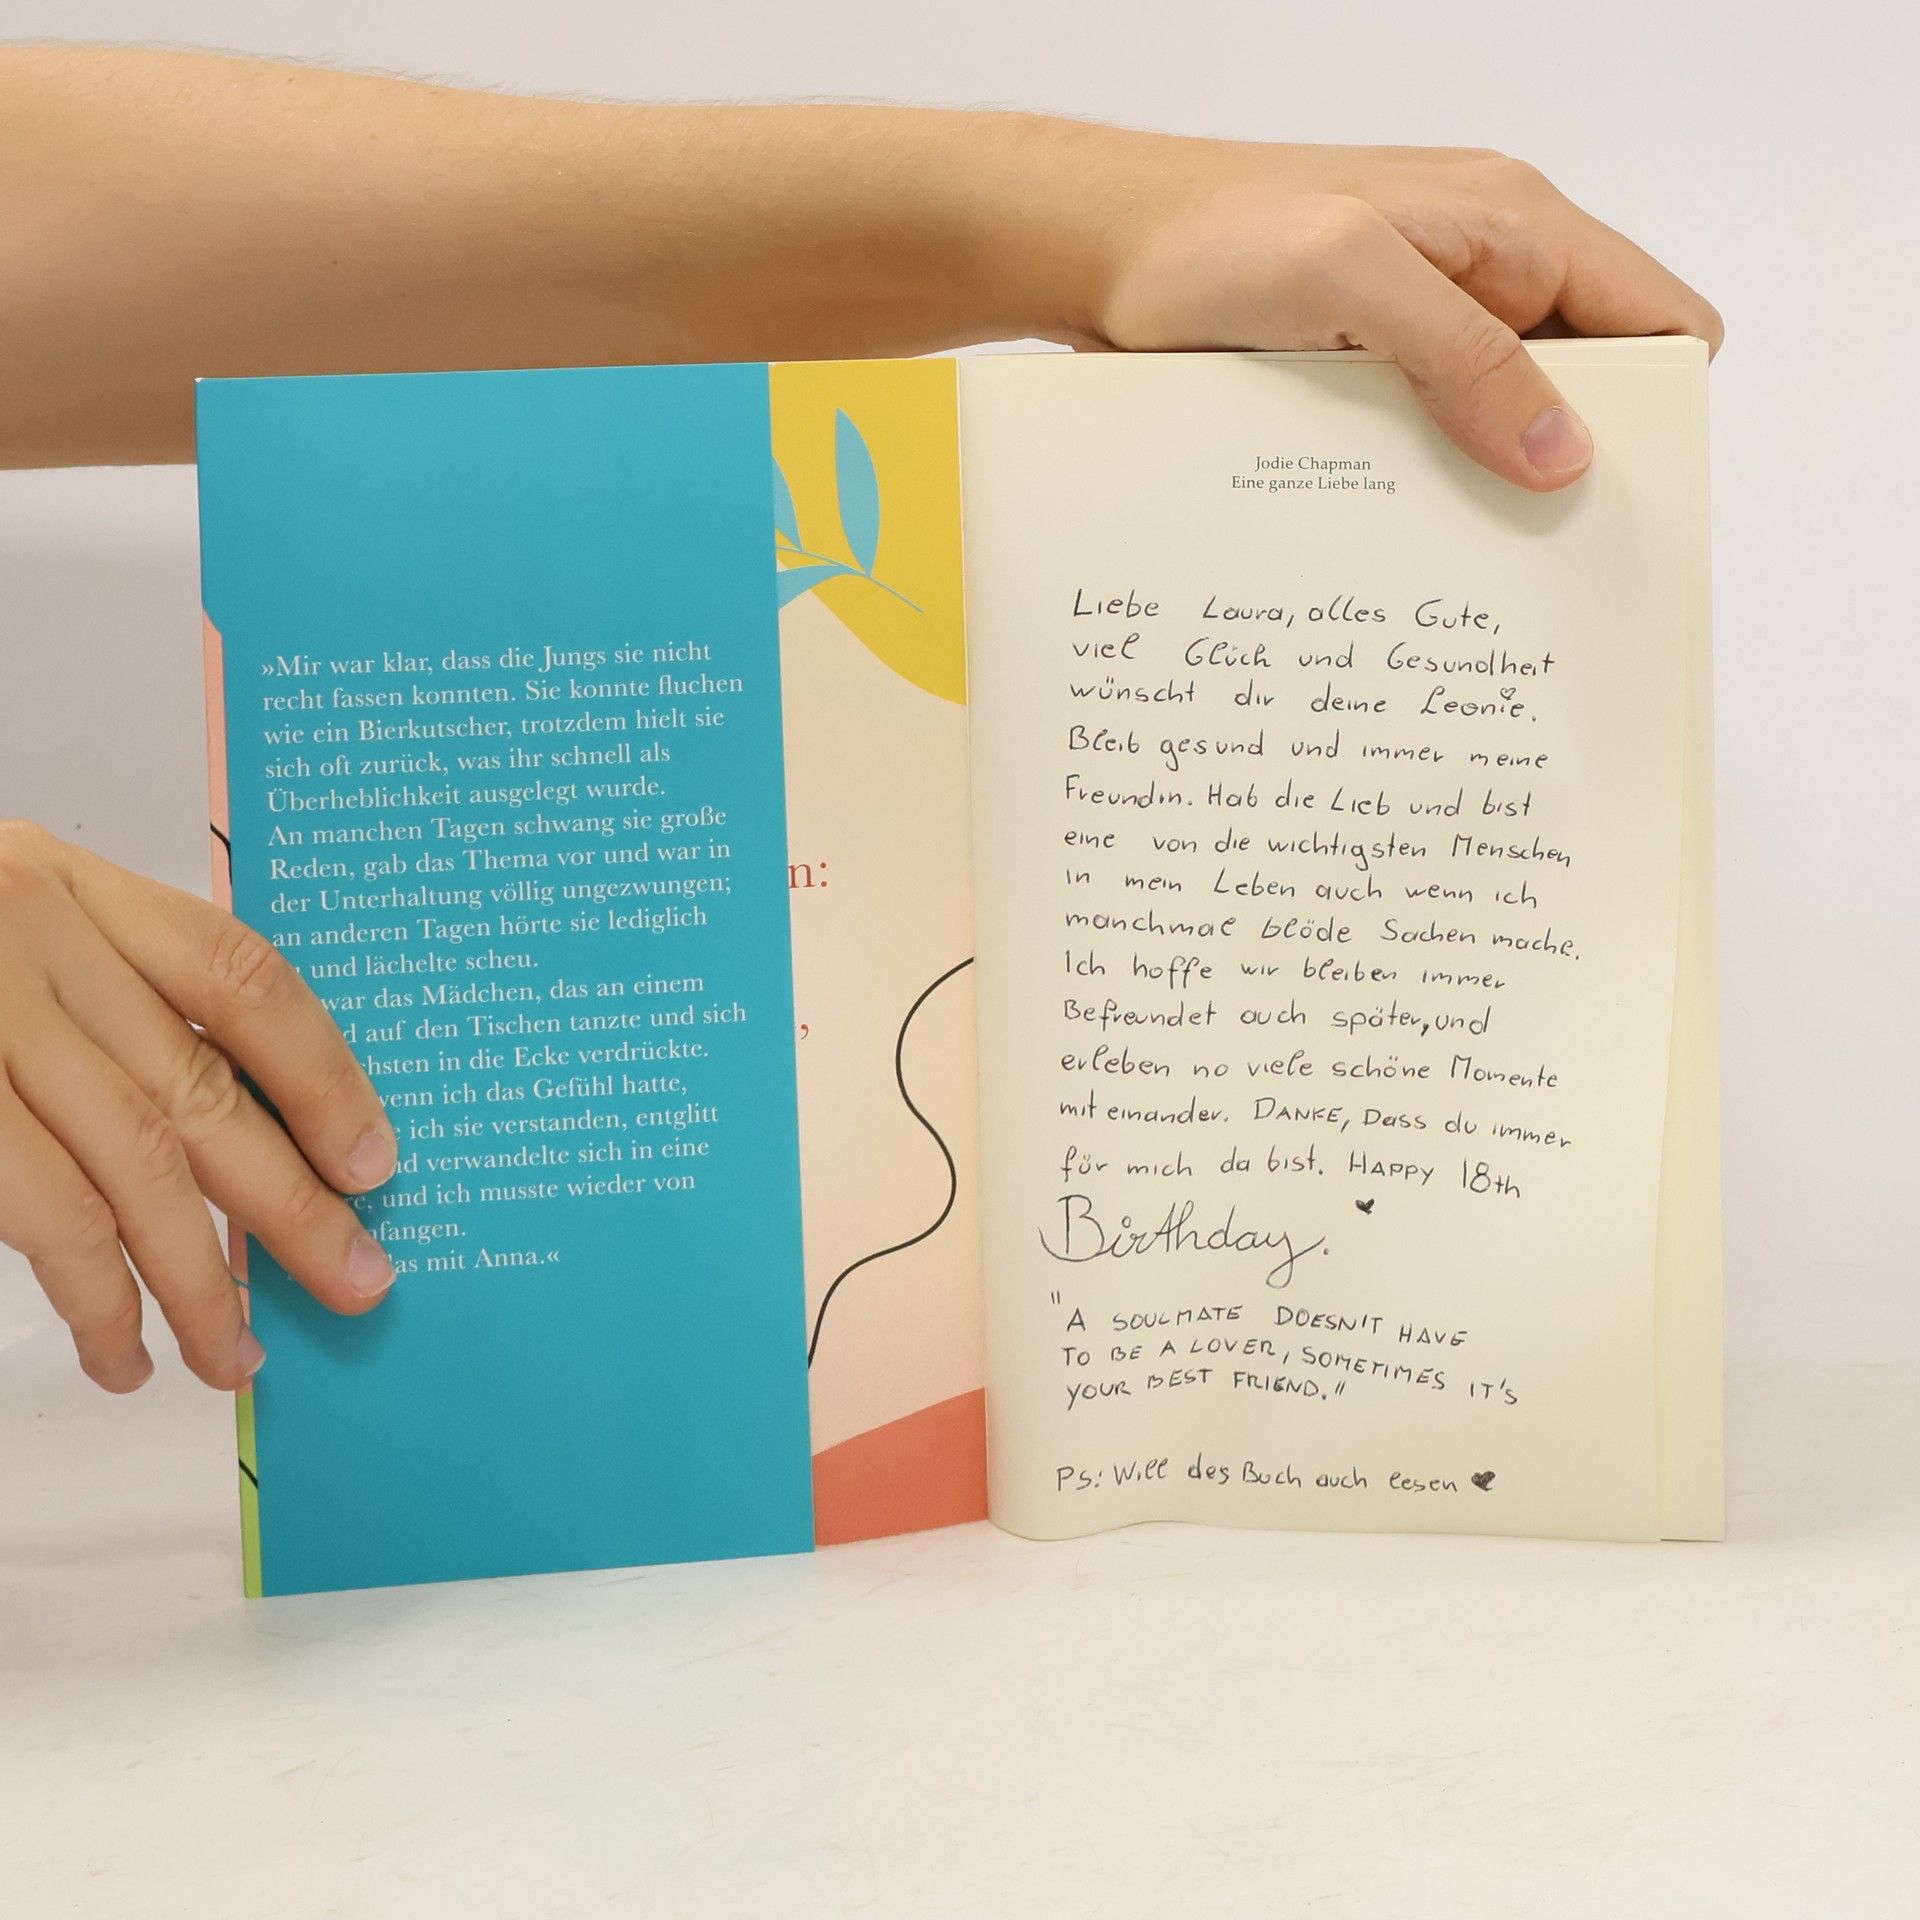 »Mir war klar, dass die Jungs sie nicht
recht fassen konnten. Sie konnte fluchen
wie ein Bierkutscher, trotzdem hielt sie
sich oft zurück, was ihr schnell als
Überheblichkeit ausgelegt wurde.
An manchen Tagen schwang sie große
Reden, gab das Thema vor und war in
der Unterhaltung völlig ungezwungen;
an anderen Tagen hörte sie lediglich
und lächelte scheu.
war das Mädchen, das an einem
auf den Tischen tanzte und sich
in die Ecke verdrückte.
wenn ich das Gefühl hatte,
ich sie verstanden, entglitt
verwandelte sich in eine
und ich musste wieder von
mit Anna.«
Jodie Chapman
Eine ganze Liebe lang
Liebe Laura, alles Gute,
viel Glück und Gesundheit
wünscht dir deine Leonie.
Bleib gesund und immer meine
Freundin. Hab die Lieb und bist
eine von die wichtigsten Menschen
in mein Leben auch wenn ich
manchmal blöde Sachen mache.
Ich hoffe wir bleiben immer
Befreundet auch später, und
erleben no viele schöne Momente
miteinander. DANKE, Dass du immer
für mich da bist. HAPPY 18th
Birthday.
"A SOULMATE DOESN'T HAVE
TO BE A LOVER, SOMETIMES IT'S
YOUR BEST FRIEND."
Ps: Will des Buch auch lesen ♥